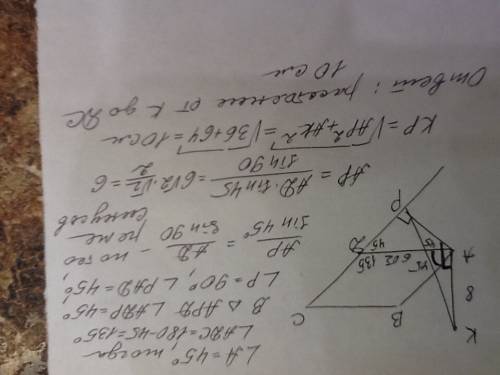 ∠A = 45°, тогда
∠ADC = 180 - 45 = 135°
В △ APD ∠ADP = 45°
∠P = 90°, ∠PAD = 45°,
AP / sin 45° = AD / sin 90 - по теореме
синусов
AP = AD · sin 45 / sin 90 = 6√2 · √2 / 2 = 6
KP = √AP² + AK² = √36 + 64 = 10 см
Ответ: расстояние от K до DC
10 см
K
8
A
B
C
D
P
45
6√2
135
45